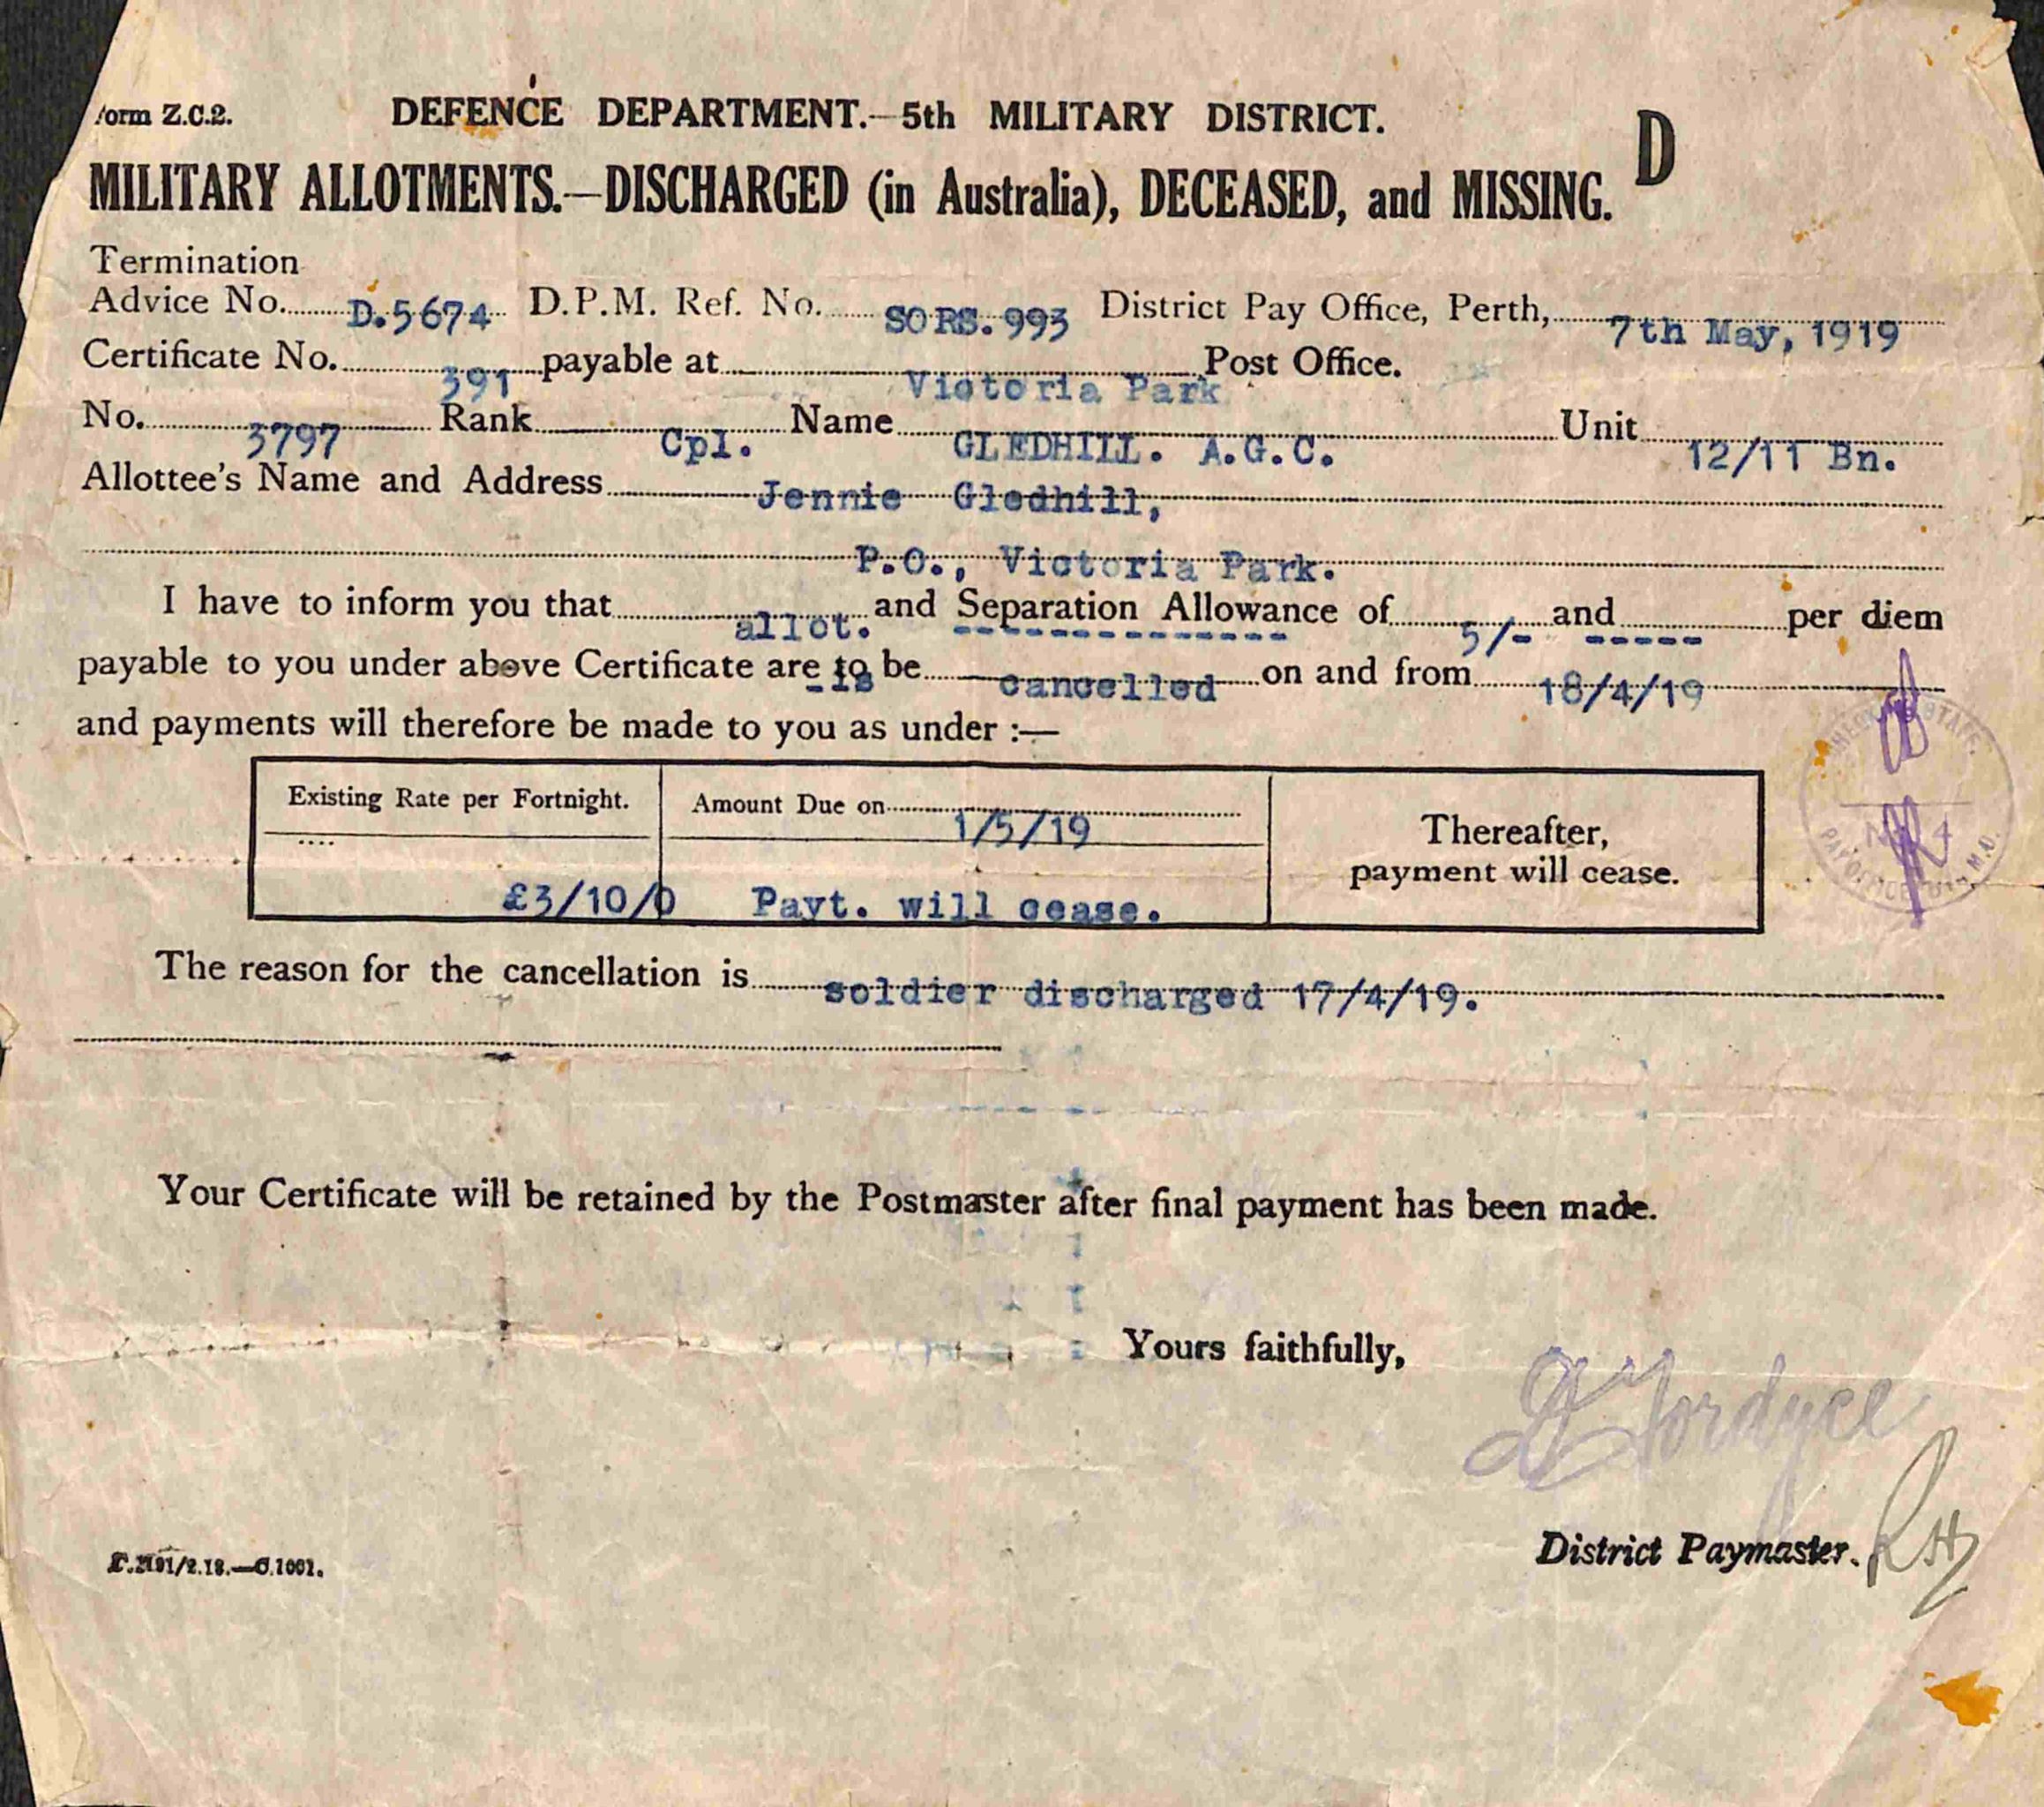 Form Z.C.2.
DEFENCE DEPARTMENT.—5th MILITARY DISTRICT.
D
MILITARY ALLOTMENTS.—DISCHARGED (in Australia), DECEASED, and MISSING.
Termination
Advice No. D.5674 D.P.M. Ref. No. SORS.993 District Pay Office, Perth, 7th May, 1919
Certificate No. 391 payable at Victoria Park Post Office.
No. 3797 Rank Cpl. Name GLEDHILL. A.G.C. Unit 12/11 Bn.
Allottee's Name and Address Jennie Gledhill,
P.O., Victoria Park.
I have to inform you that allot. and Separation Allowance of 5/- and ----- per diem
payable to you under above Certificate are to be -is cancelled on and from 18/4/19
and payments will therefore be made to you as under :—
Existing Rate per Fortnight.
£3/10/0
Amount Due on 1/5/19
Payt. will cease.
Thereafter,
payment will cease.
The reason for the cancellation is soldier discharged 17/4/19.
Your Certificate will be retained by the Postmaster after final payment has been made.
Yours faithfully,
Fordyce
District Paymaster.